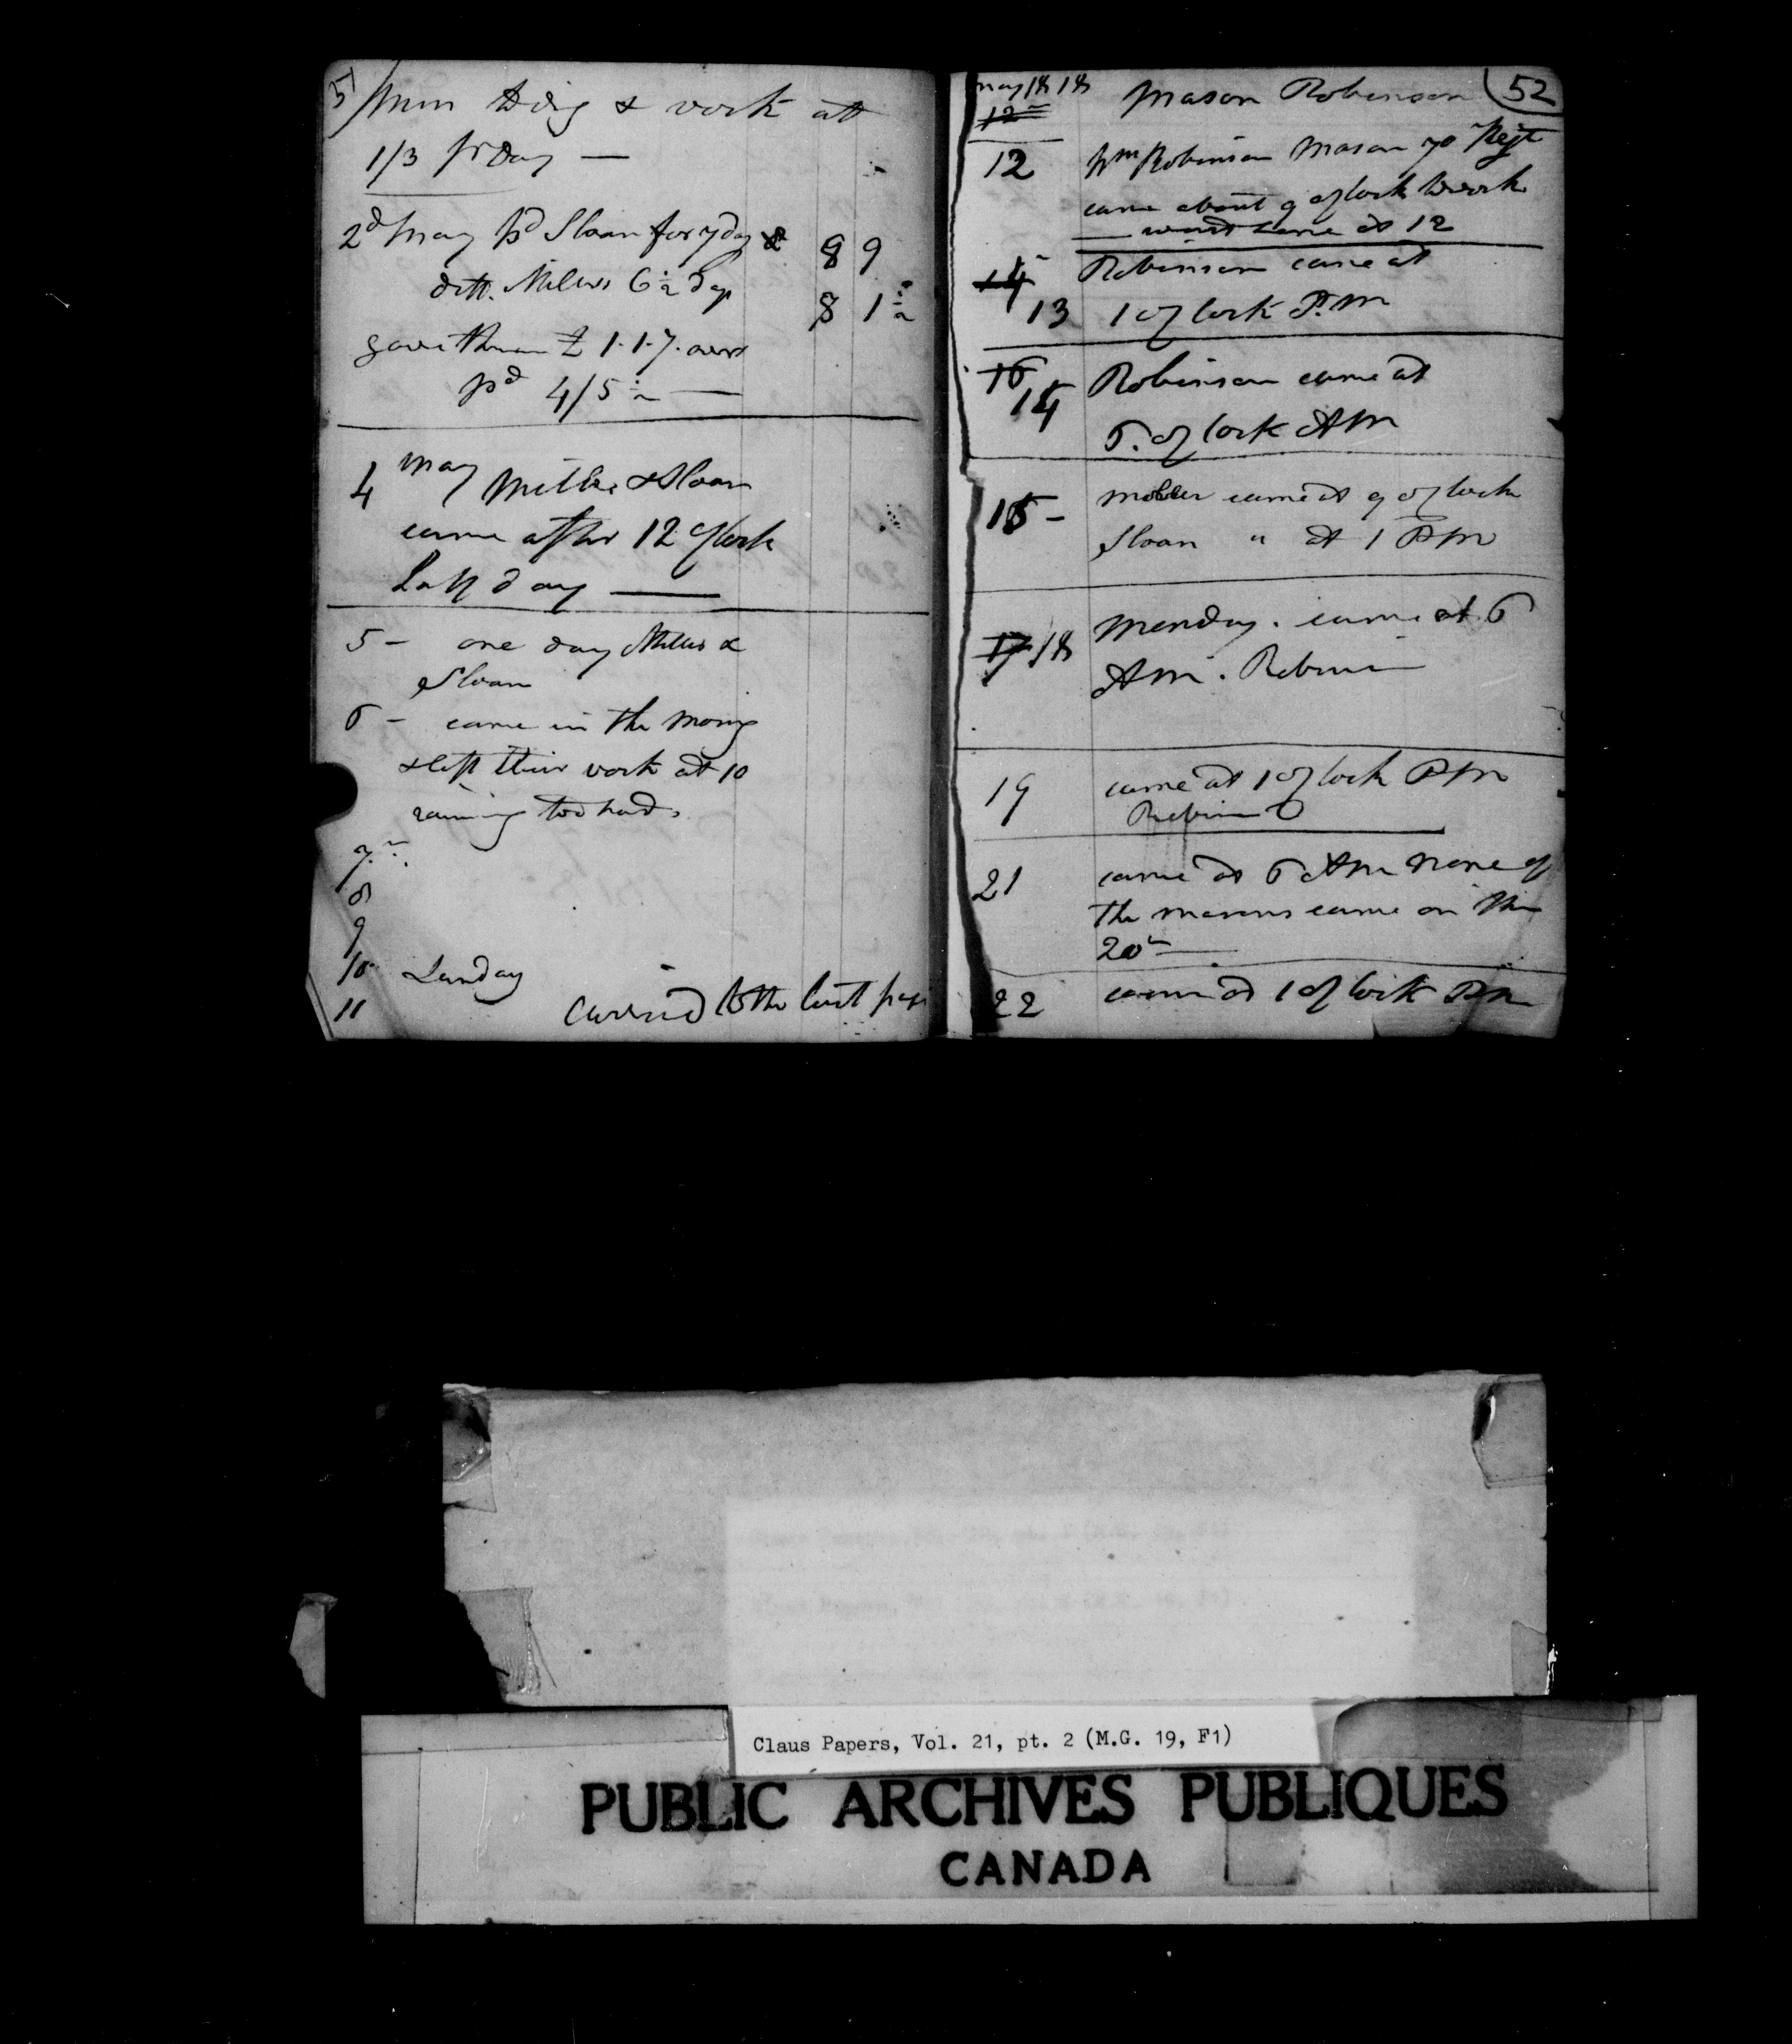 51
Men Dig & work at
1/3 pr Day —
2d May pd Sloan for 7 day 8 9
ditto Miller 6 1/2 days 8 1 1/2
gave them £ 1.1.7. over
pd 4/5 1/2 —
4 May Miller & Sloan
came after 12 oClock
half day —
5 — one day Miller &
Sloan
6 — came in the morng
& left their work at 10
raining too hard
7
8
9
10 Sunday
11
Carried to the last page
52
May 1818
12
Mason Robinson
12 Wm Robinson Mason 70 Regt
came about 9 oClock to work
— went home at 12
14
13
Robinson came at
1 oClock P.M
16
14
Robinson came at
6. oClock AM
15 — Miller came at 9 oClock
Sloan " at 1 PM
17 18 Monday. came at 6
AM. Robinson
19 came at 1 oClock PM
Robinson
21 came at 6 AM none of
the masons came on the
20th —
22 came at 1 oClock PM
Claus Papers, Vol. 21, pt. 2 (M.G. 19, F1)
PUBLIC ARCHIVES PUBLIQUES
CANADA